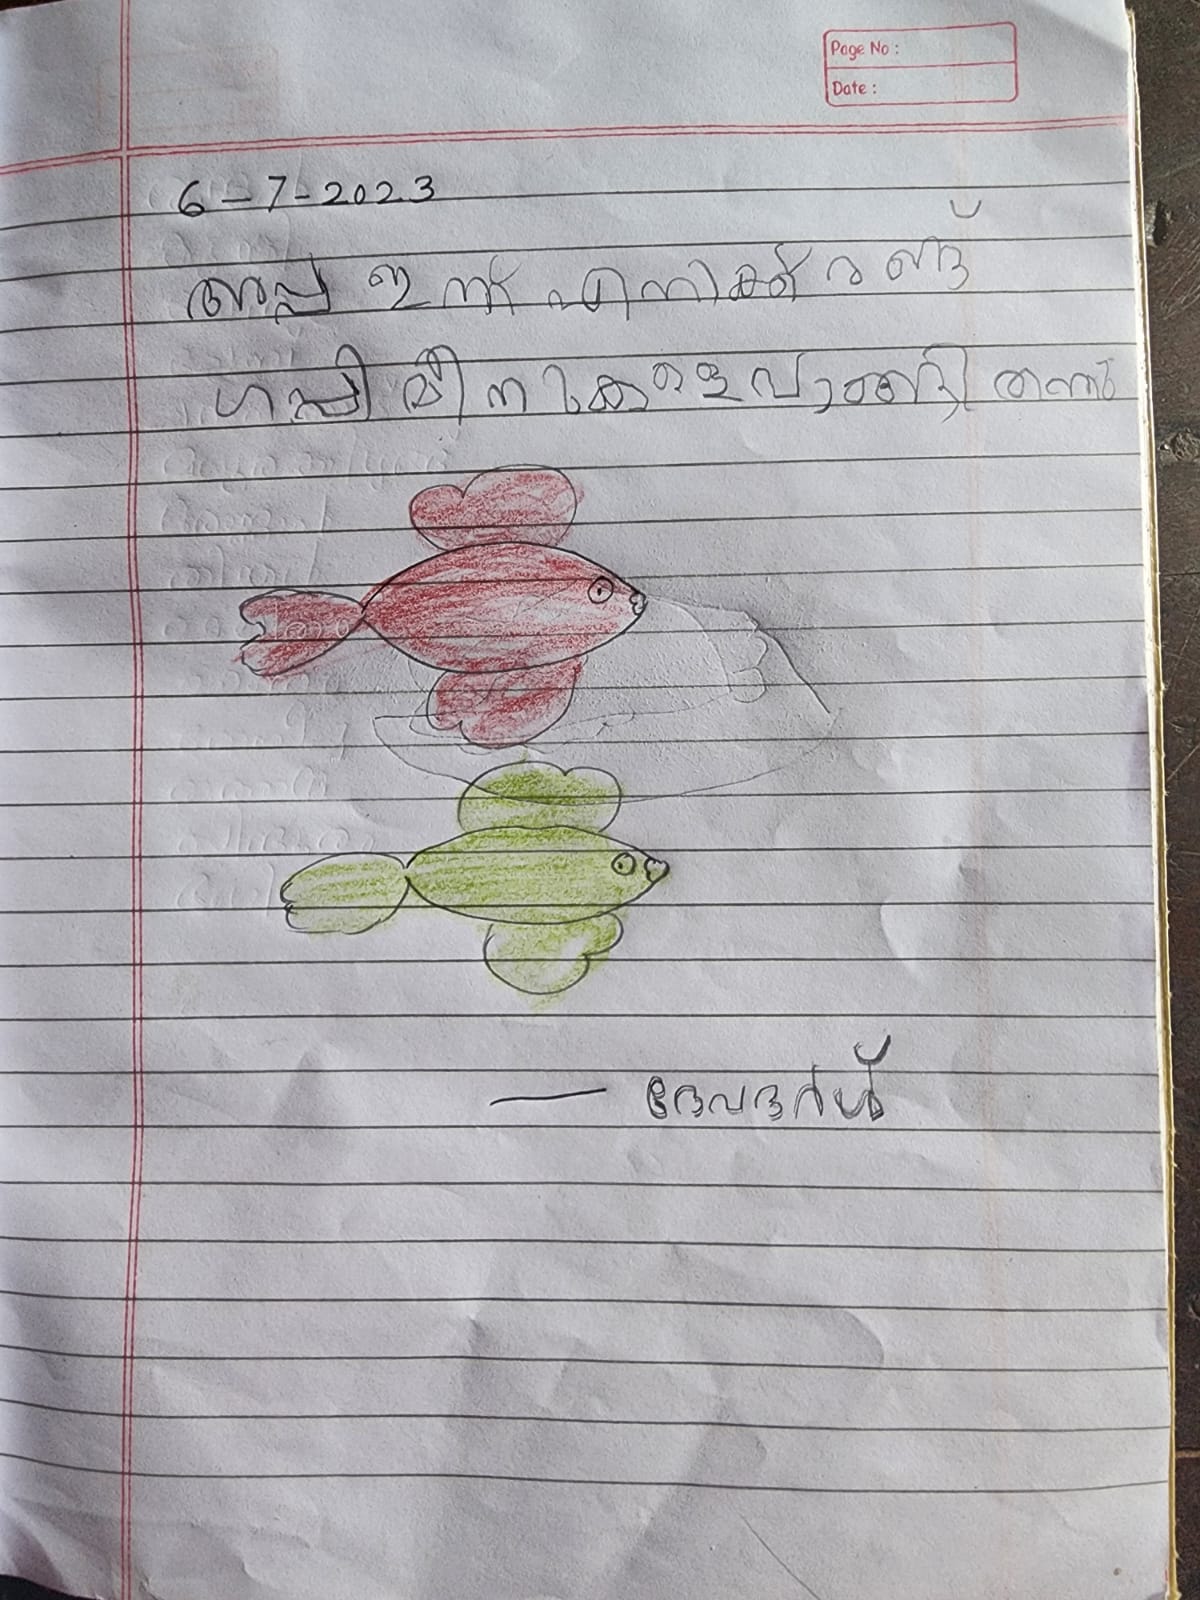 Page No :
Date :
6-7-2023
അപ്പ ഇന്ന് എനിക്ക് രണ്ടു്
ഗപ്പി മീനുകളെ വാങ്ങി തന്നു
— ദേവദർശ്